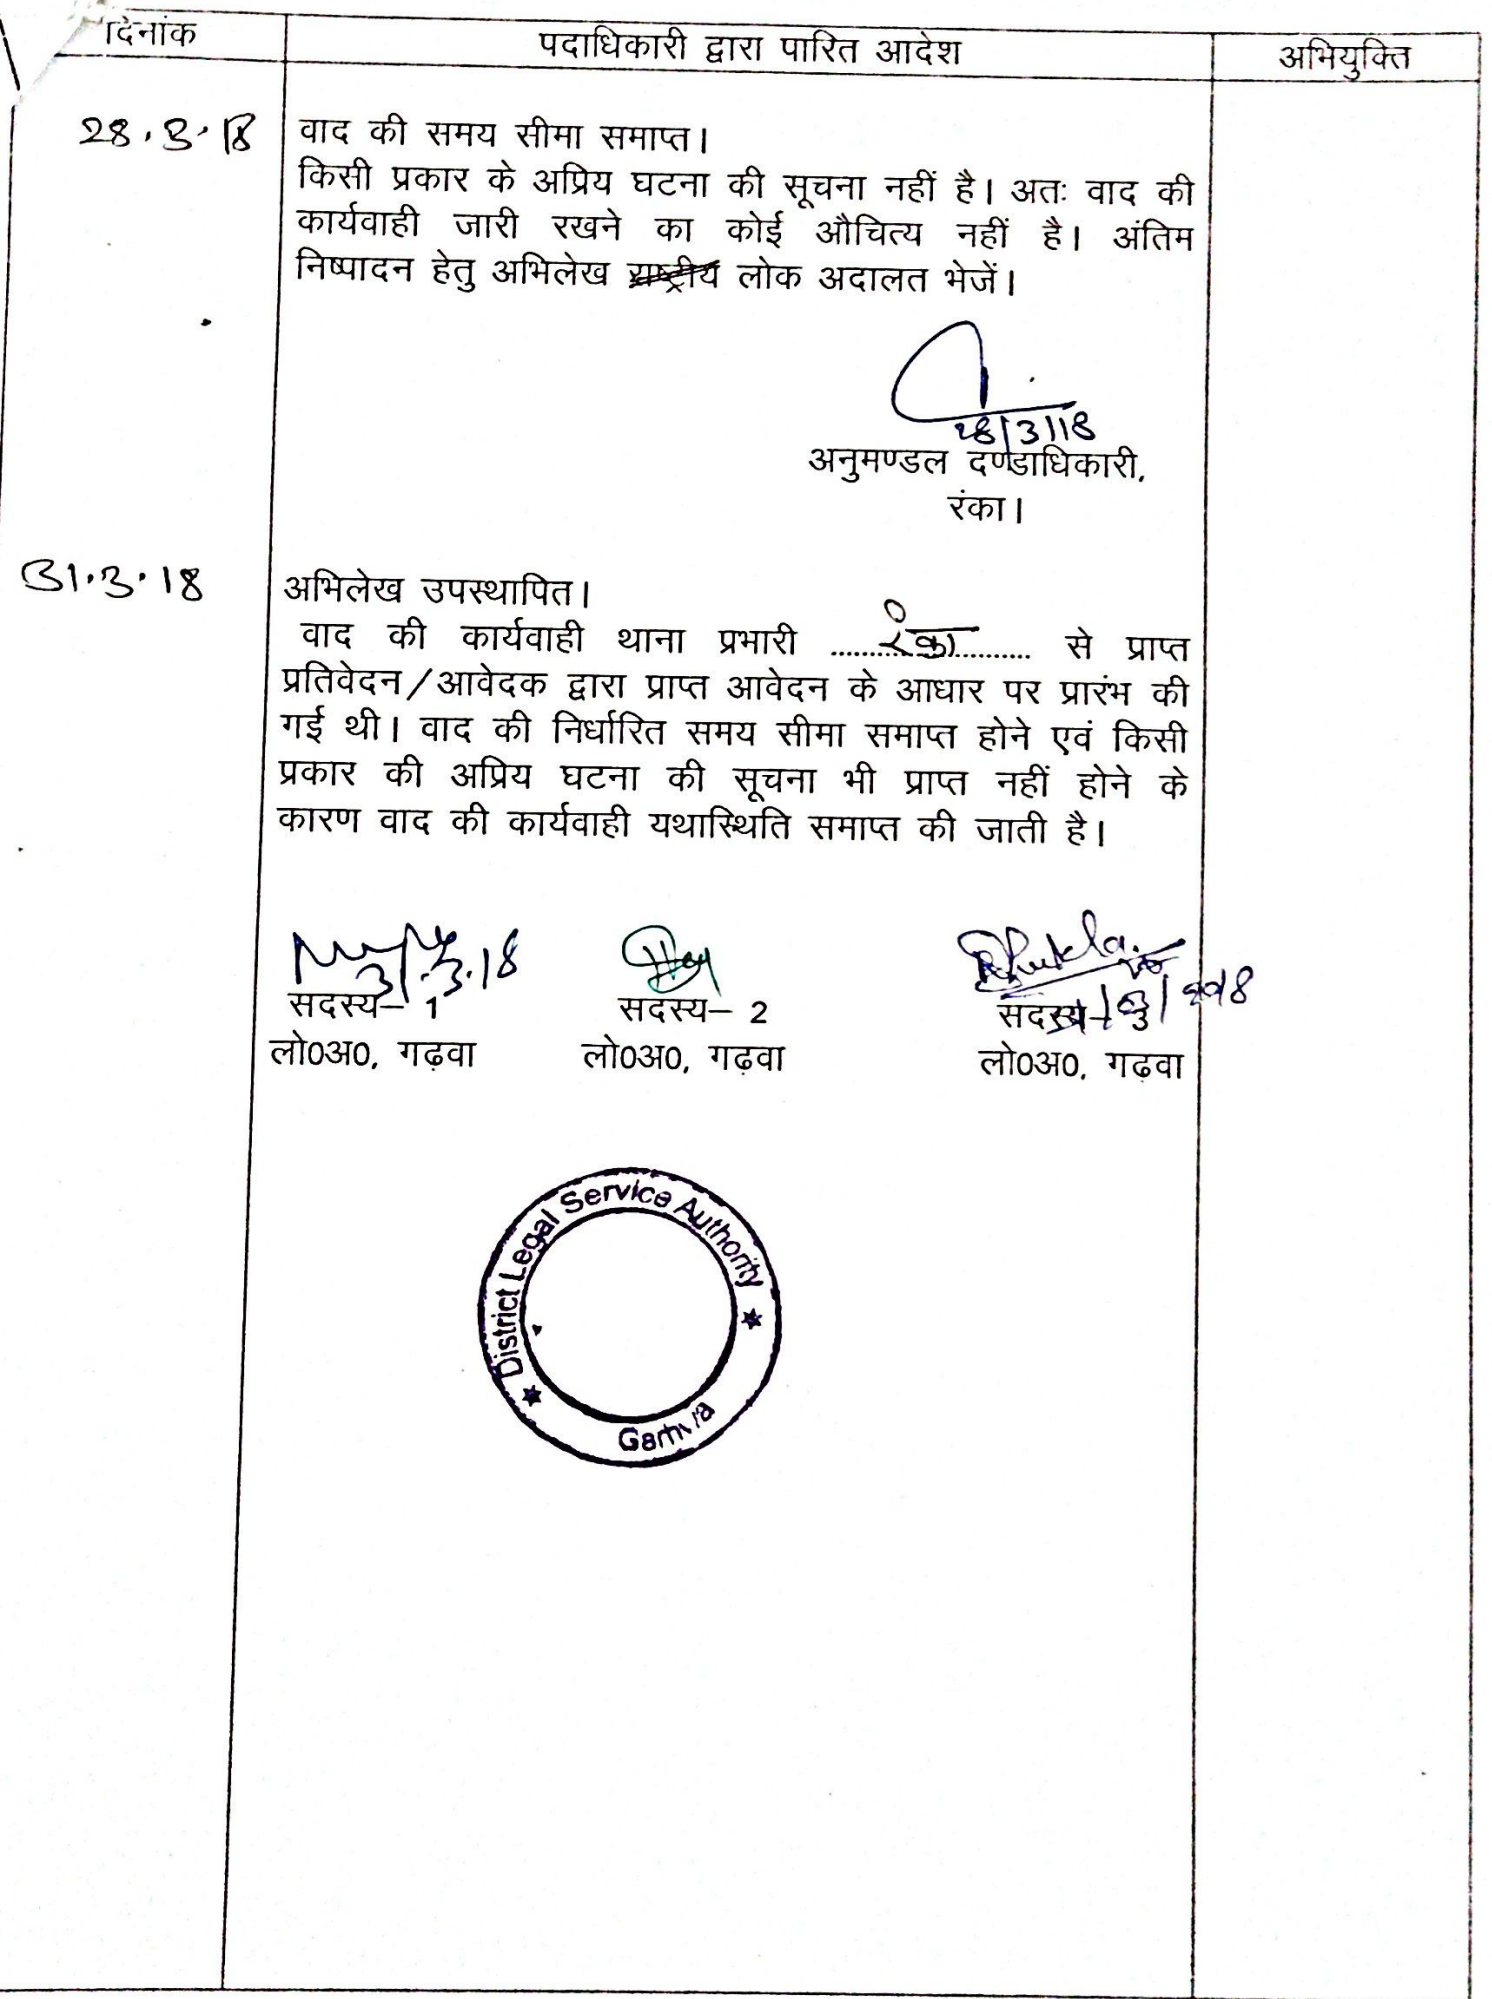 दिनांक पदाधिकारी द्वारा पारित आदेश अभियुक्ति
28.3.18 वाद की समय सीमा समाप्त।
किसी प्रकार के अप्रिय घटना की सूचना नहीं है। अतः वाद की
कार्यवाही जारी रखने का कोई औचित्य नहीं है। अंतिम
निष्पादन हेतु अभिलेख राष्ट्रीय लोक अदालत भेजें।
28/3/18
अनुमण्डल दण्डाधिकारी,
रंका।
31.3.18 अभिलेख उपस्थापित।
वाद की कार्यवाही थाना प्रभारी ....रंका.... से प्राप्त
प्रतिवेदन/आवेदक द्वारा प्राप्त आवेदन के आधार पर प्रारंभ की
गई थी। वाद की निर्धारित समय सीमा समाप्त होने एवं किसी
प्रकार की अप्रिय घटना की सूचना भी प्राप्त नहीं होने के
कारण वाद की कार्यवाही यथास्थिति समाप्त की जाती है।
31.3.18
सदस्य– 1 सदस्य– 2 सदस्य– 3
लो0अ0, गढ़वा लो0अ0, गढ़वा लो0अ0, गढ़वा
District Legal Service Authority
Garhwa